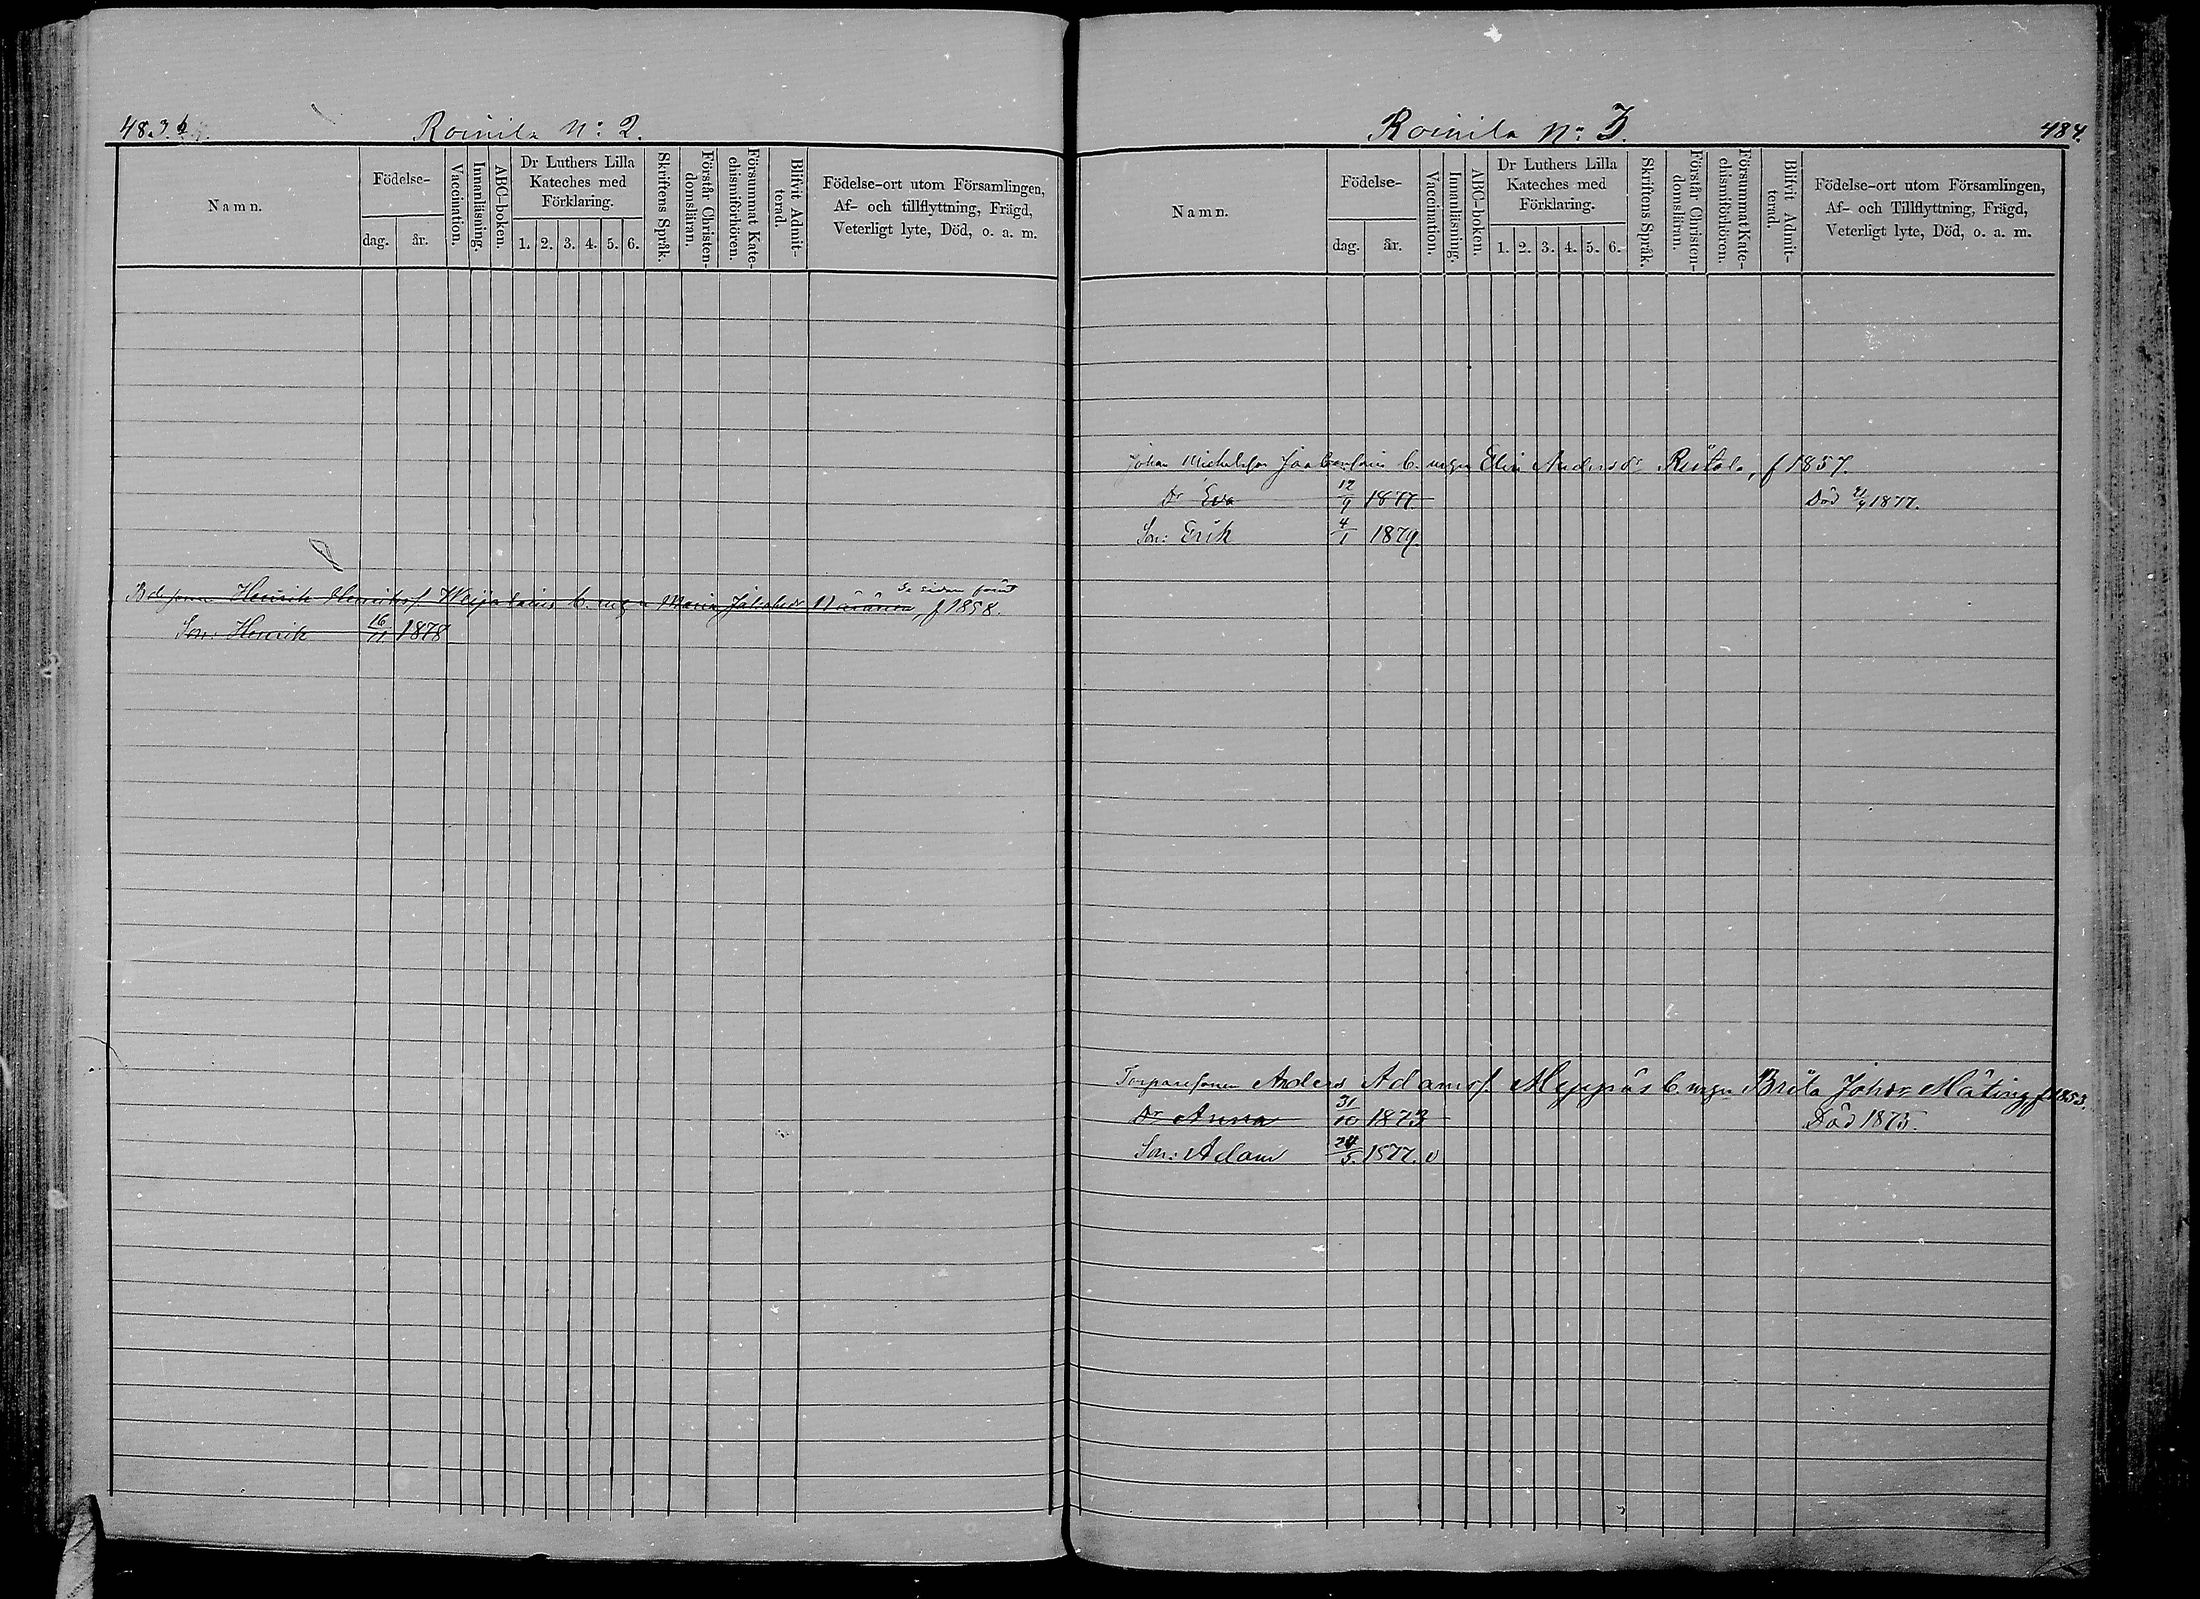 483. b.
Roinila No: 2.
Namn.
Födelse-
dag.
år.
Vaccination.
Innanläsning.
ABC-boken.
Dr Luthers Lilla
Kateches med
Förklaring.
1. 2. 3. 4. 5. 6.
Skriftens Språk.
Förstår Christen-
domsläran.
Försummat Kate-
chismiförhören.
Blifvit Admit-
terad.
Födelse-ort utom Församlingen,
Af- och tillflyttning, Frägd,
Veterligt lyte, Död, o. a. m.
se sidan förut
Henrik Henriksf. b. mgn Maria Jakobsdr f 1858.
Son: Henrik 16/11 1878
Roinila No: 3.
484.
Namn.
Födelse-
dag.
år.
Vaccination.
Innanläsning.
ABC-boken.
Dr Luthers Lilla
Kateches med
Förklaring.
1. 2. 3. 4. 5. 6.
Skriftens Språk.
Förstår Christen-
domsläran.
Försummat Kate-
chismiförhören.
Blifvit Admit-
terad.
Födelse-ort utom Församlingen,
Af- och Tillflyttning, Frägd,
Veterligt lyte, Död, o. a. m.
Johan Michelsson b. mgn Elin Andersdr f 1857.
Dr Eva 12/9 1877 Död 21/9 1877.
Son: Erik 4/1 1879.
Torparesonen Anders Adamsf. b. mgn Brita Johdr f 1853.
Dr Anna 31/10 1873 Död 1875.
Son: Adam 24/5. 1877. v